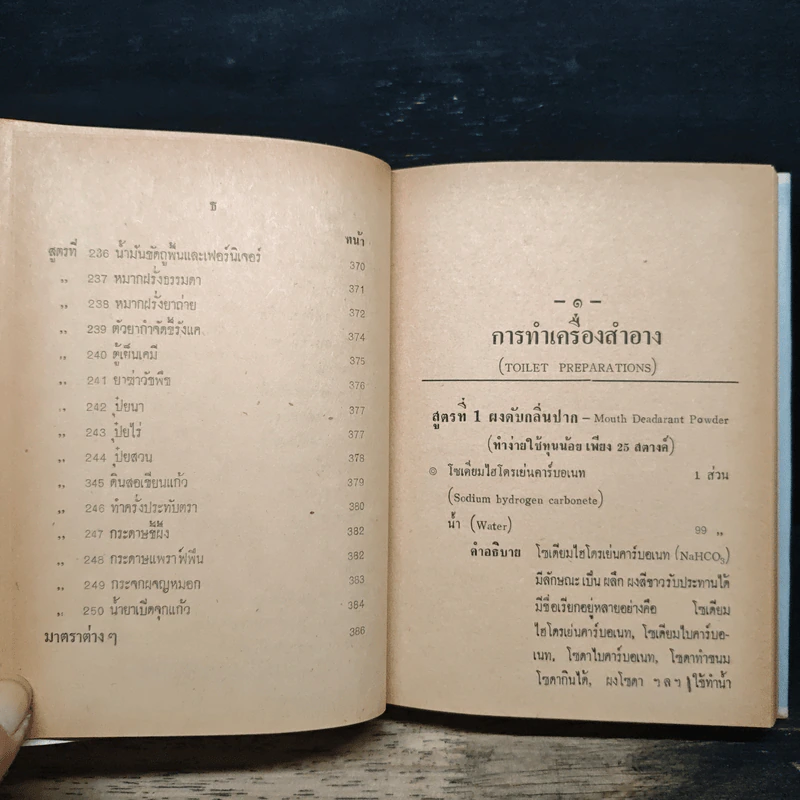 ธ
หน้า
สูตรที่ 236 น้ำมันขัดถูพื้นและเฟอร์นิเจอร์ 370
,, 237 หมากฝรั่งธรรมดา 371
,, 238 หมากฝรั่งยาถ่าย 372
,, 239 ตัวยากำจัดขี้รังแค 374
,, 240 ตู้เย็นเคมี 375
,, 241 ยาฆ่าวัชพืช 376
,, 242 ปุ๋ยนา 377
,, 243 ปุ๋ยไร่ 377
,, 244 ปุ๋ยสวน 378
,, 345 ดินสอเขียนแก้ว 379
,, 246 ทำครั่งประทับตรา 380
,, 247 กระดาษขี้ผึ้ง 382
,, 248 กระดาษแพราฟฟิน 382
,, 249 กระจกผจญหมอก 383
,, 250 น้ำยาเบิดจุกแก้ว 384
มาตราต่าง ๆ 386
– ๑ –
การทำเครื่องสำอาง
(TOILET PREPARATIONS)
สูตรที่ 1 ผงดับกลิ่นปาก – Mouth Deadarant Powder
(ทำง่ายใช้ทุนน้อย เพียง 25 สตางค์)
๏ โซเดียมไฮโดรเย่นคาร์บอเนท 1 ส่วน
(Sodium hydrogen carbonete)
น้ำ (Water) 99 ,,
คำอธิบาย โซเดียมไฮโดรเย่นคาร์บอเนท (NaHCO₃)
มีลักษณะเป็น ผลึก ผงสีขาวรับประทานได้
มีชื่อเรียกอยู่หลายอย่างคือ โซเดียม
ไฮโดรเย่นคาร์บอเนท, โซเดียมไบคาร์บอ-
เนท, โซดาไบคาร์บอเนท, โซดาทำขนม
โซดากินได้, ผงโซดา ฯลฯ ใช้ทำน้ำ